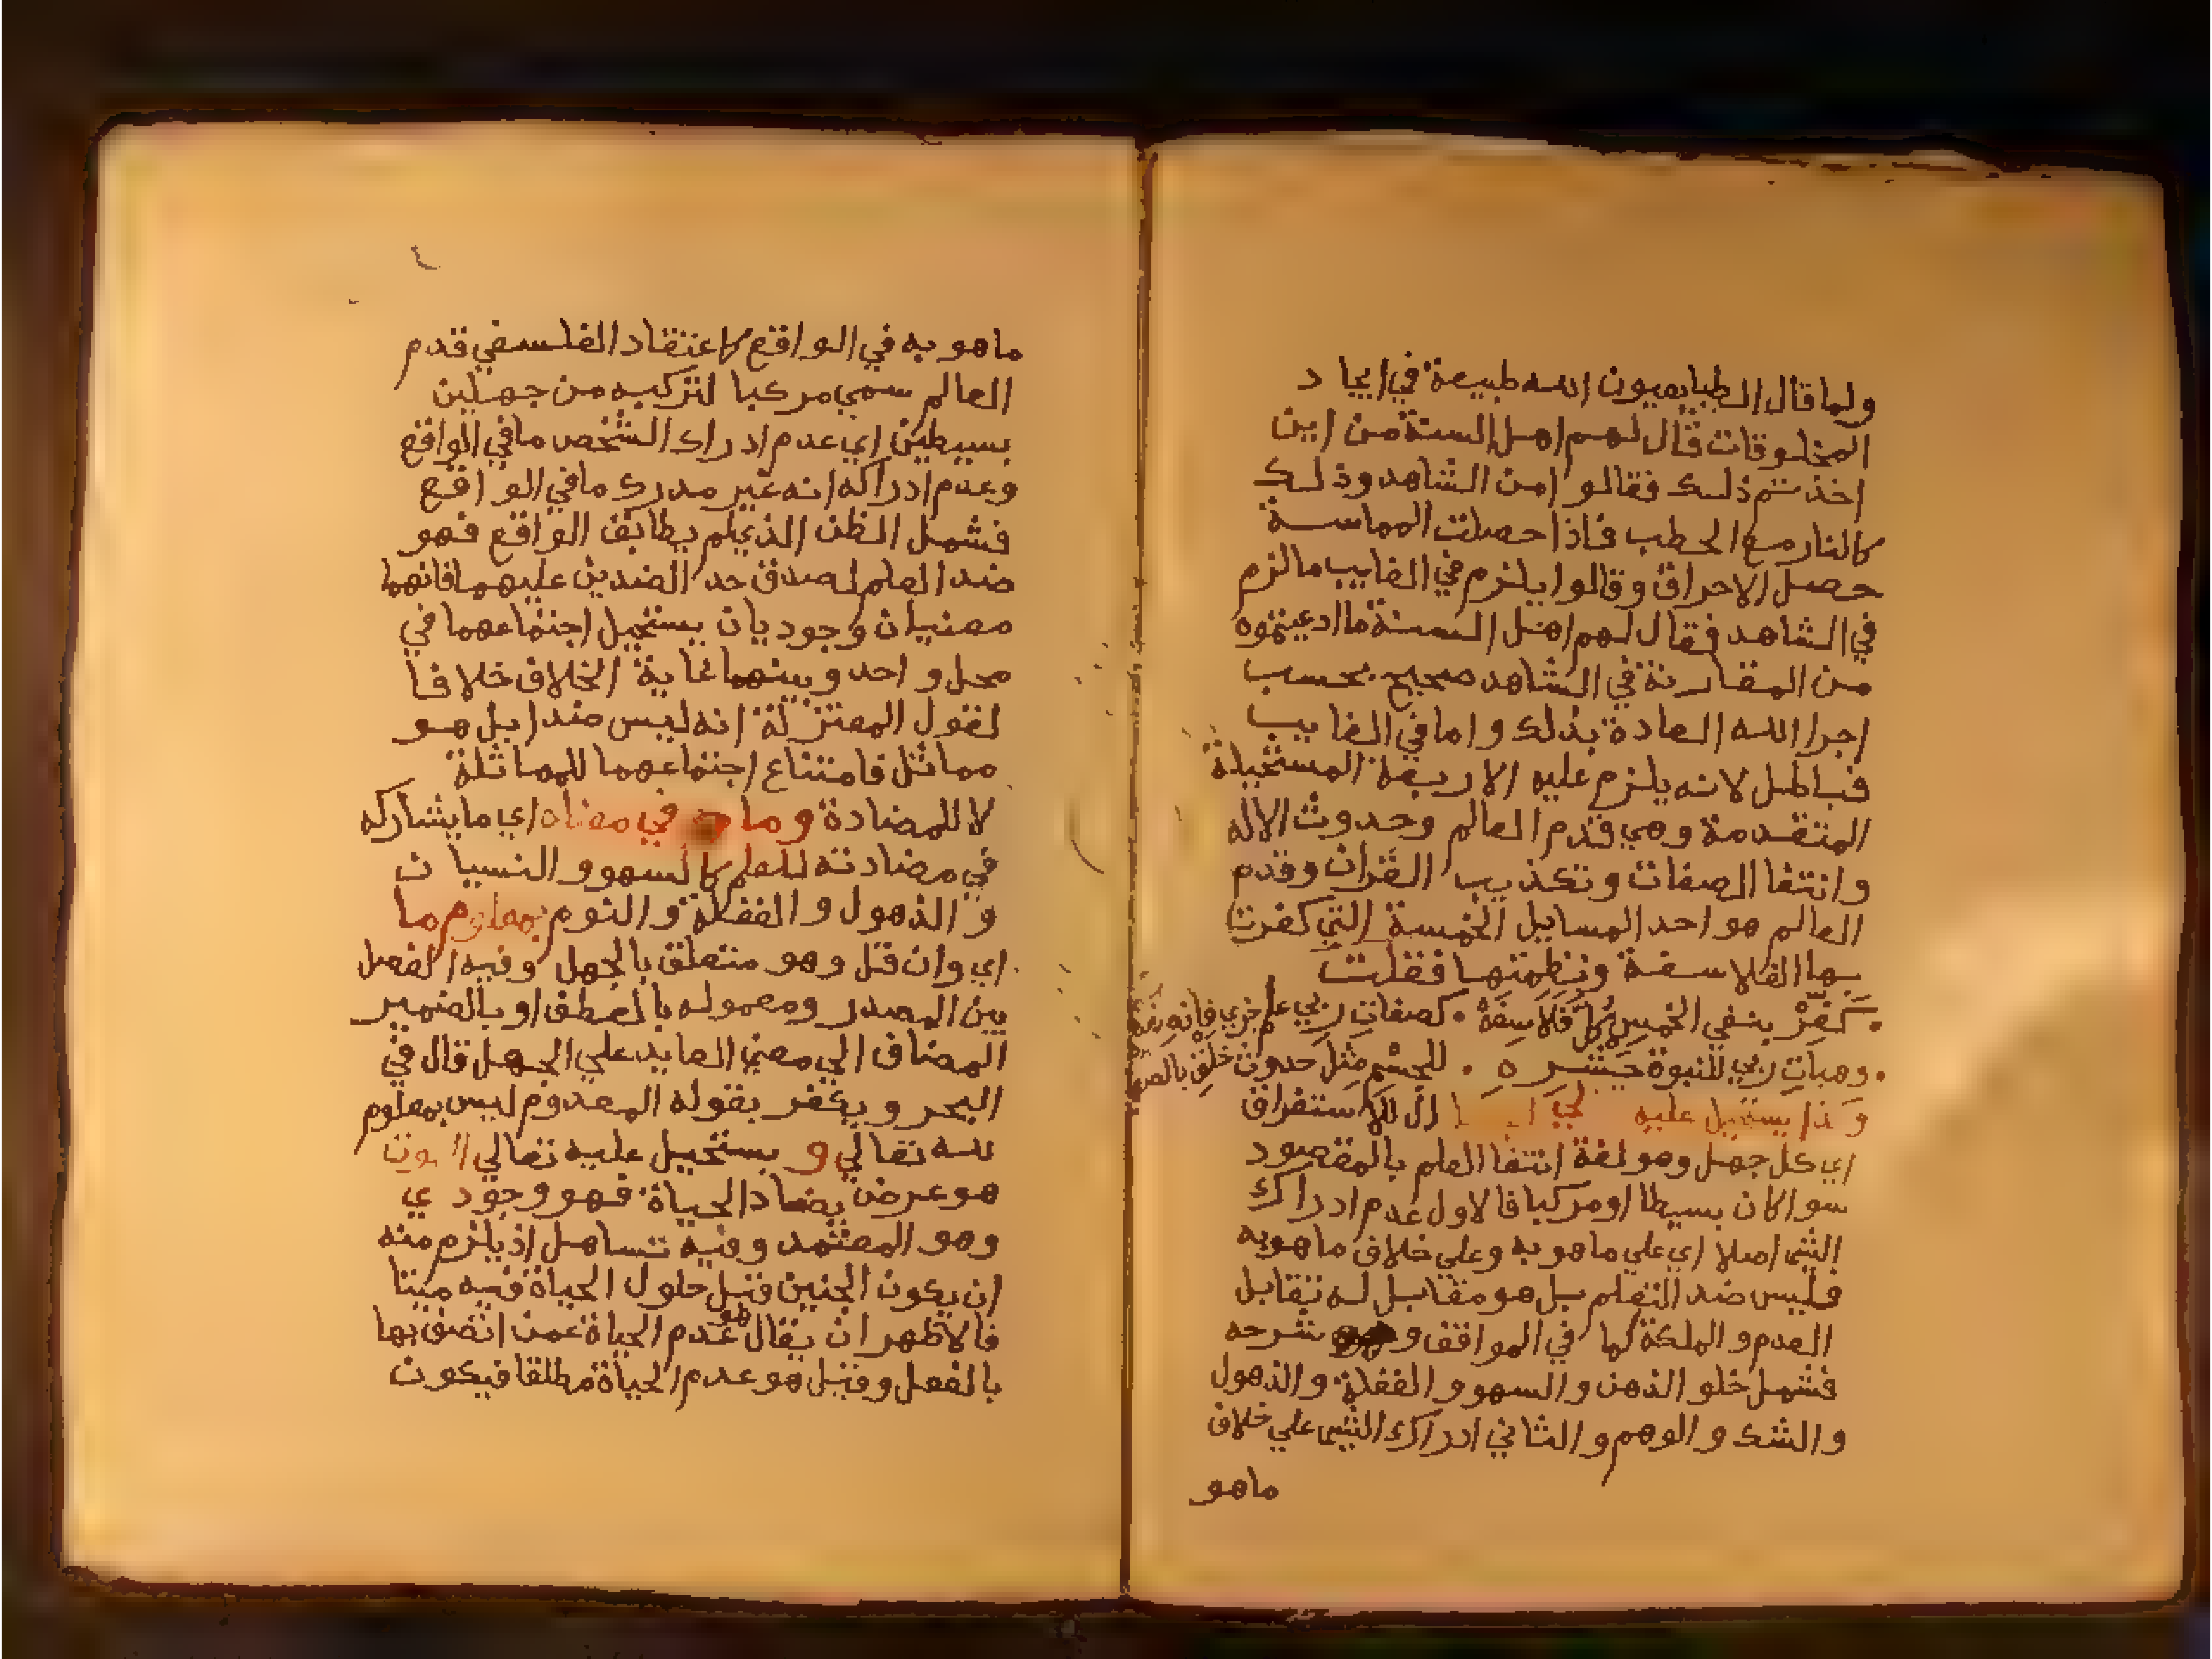 ولما قال الطبايعيون الله طبيعة في ايجا د
المخلوقات قال لهم اهل السنة من اين
اخذ تم ذلك فقالوا من الشاهد وذلك
كالنار مع الحطب فاذا حصلت المماسة
حصل الاحراق وقالوا يلزم في الغايب مالزم
في الشاهد فقال لهم اهل السنة ما ادعيتموه
من المقارنة في الشاهد صحيح بحسب
اجرا الله العادة بذلك واما في الغايب
فباطل لانه يلزم عليه الاربعة المستحيلة
المتقدمة وهي قدم العالم وحدوث الاله
وانتفا الصفات وتكذيب القران وقدم
العالم هو احد المسايل الخمسة التي كفرت
بها الفلاسفة ونظمتها فقلت
كفر بنفي الخمس كل فلاسفة . كصفات ربي علم جزي فانه
. وهبات ربي للنبوة حشر ه . للجسم مثل حدوث خلق
يستحيل عليه ال للاستغراق
اي كل جهل وهو لغة انتفا العلم بالمقصود
سوا كان بسيطا او مركبا فالاول عدم ادراك
الشي اصلا اي علي ما هو به وعلي خلاف ما هو به
فليس ضد التعلم بل هو مقابل له تقابل
العدم والملكة كما في المواقف و شرحه
فشمل خلو الذهن والسهو والغفلة والذهول
والشك والوهم والثاني ادراك الشي علي خلاف
ماهو
ماهو به في الواقع كاعتقاد الفلسفي قدم
العالم سمي مركبا لتركبه من جهلين
بسيطين اي عدم ادراك الشخص مافي الواقع
وعدم ادراكه انه غير مدرك مافي الواقع
فشمل الظن الذي لم يطابق الواقع فهو
ضد العلم لصدق حد الضدين عليهما فانهما
معنيان وجوديان يستحيل اجتماعهما في
محل واحد وبينهما غاية الخلاف خلافا
لقول المعتزلة انه ليس ضدا بل هو
مماثل فامتناع اجتماعهما للمماثلة
لا للمضادة وما في معناه اي مايشاركه
في مضادته للعلم كالسهو والنسيا ن
و الذهول والغفلة والنوم بمعلوم ما
اي وان قل وهو متعلق بالجهل وفيه الفصل
بين المصدر ومعموله بالعطف او بالضمير
المضاف الي معني العايد علي الجهل قال في
البحر ويكفر بقوله المعدوم ليس بمعلوم
لله تعالي و يستحيل عليه تعالي
هو عرض يضاد الحياة فهو وجود ي
وهو المعتمد وفيه تساهل اذ يلزم منه
ان يكون الجنين قبل حلول الحياة فيه ميتا
فالاظهر ان يقال هو عدم الحياة عمن اتصف بها
بالفعل وقيل هو عدم الحياة مطلقا فيكون